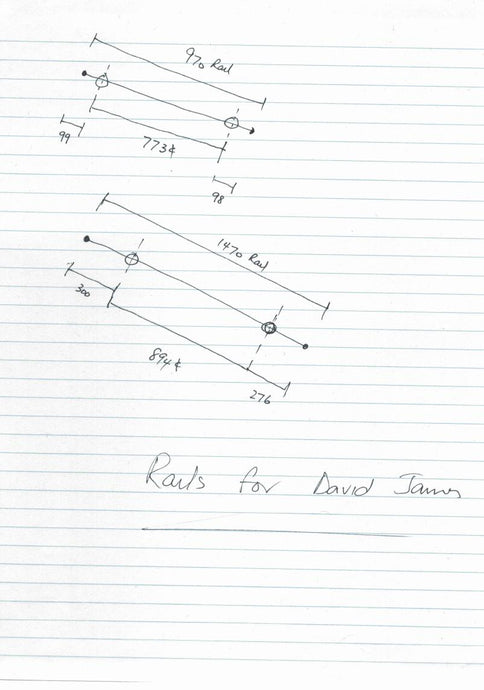 970 Rail
99
773¢
98
1470 Rail
300
894¢
276
Rails for David James